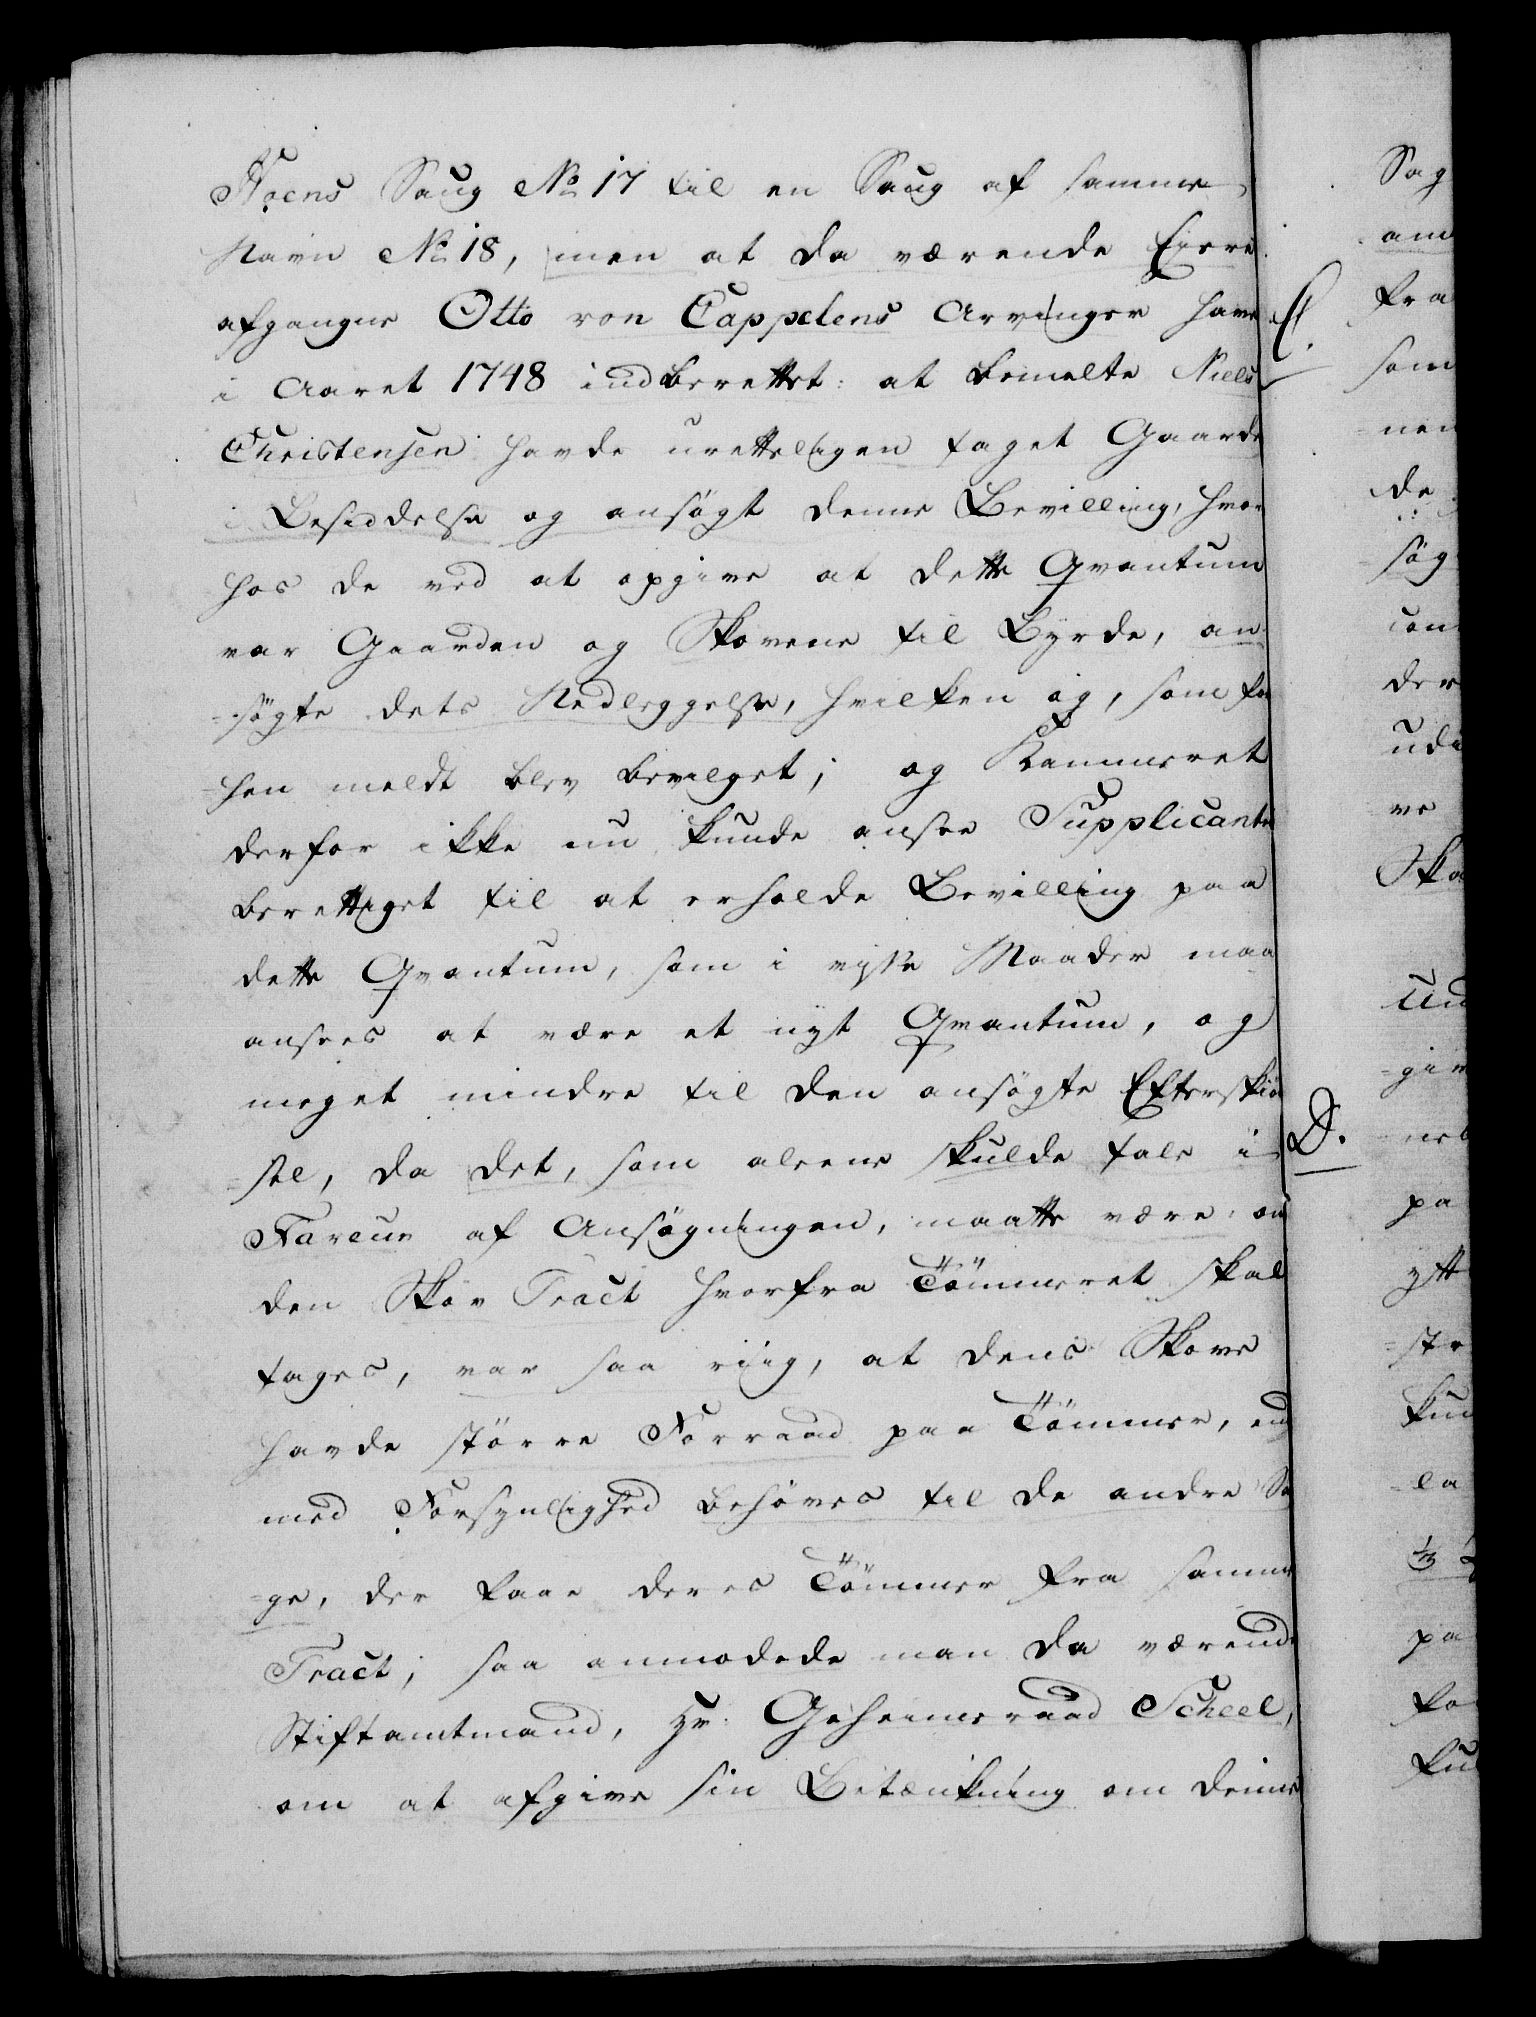 Hoens Saug No 17 til en Saug af samme
Navn No 18, men at da værende Eiere
afgangne Otto von Cappelens Arvinger have
i Aaret 1748 indberettet: at bemelte Niels
Christensen havde uretteligen taget Gaarde
i Besiddelse og ansøgt denne Bevilling, hvor
hos de ved at opgive at dette Qvantum
var Gaarden og Skovene til Byrde, an
=søgte dets Nedleggelse, hvilken og, som for
=hen meldt blev bevilget; og Kammeret
derfor ikke nu kunde ansee Supplicanten
berettiget til at erholde Bevilling paa
dette Qvantum, som i visse Maader maa
ansees at være et nyt Qvantum, og
meget mindre til den ansøgte Efterskiø
=sel, da det, som aleene skulde tale i
Faveur af Ansøgningen, maatte være: om
den Skov Tract hvorfra Tömmeret skal
tages, var saa riig, at dens Skove
havde større Forraad paa Tömmer, end
med Forsynlighed behøves til de andre Sa
=ge, der faae deres Tömmer fra samme
Tract; saa anmodede man da værende
Stiftamtmand, Hr. Geheimeraad Scheel,
om at afgive sin Betænkning om denne
C.
D.
Sag
fra
som
de
søg
der
udi
ve
Sko
giv
pa
ytt
kun
la
pa
for